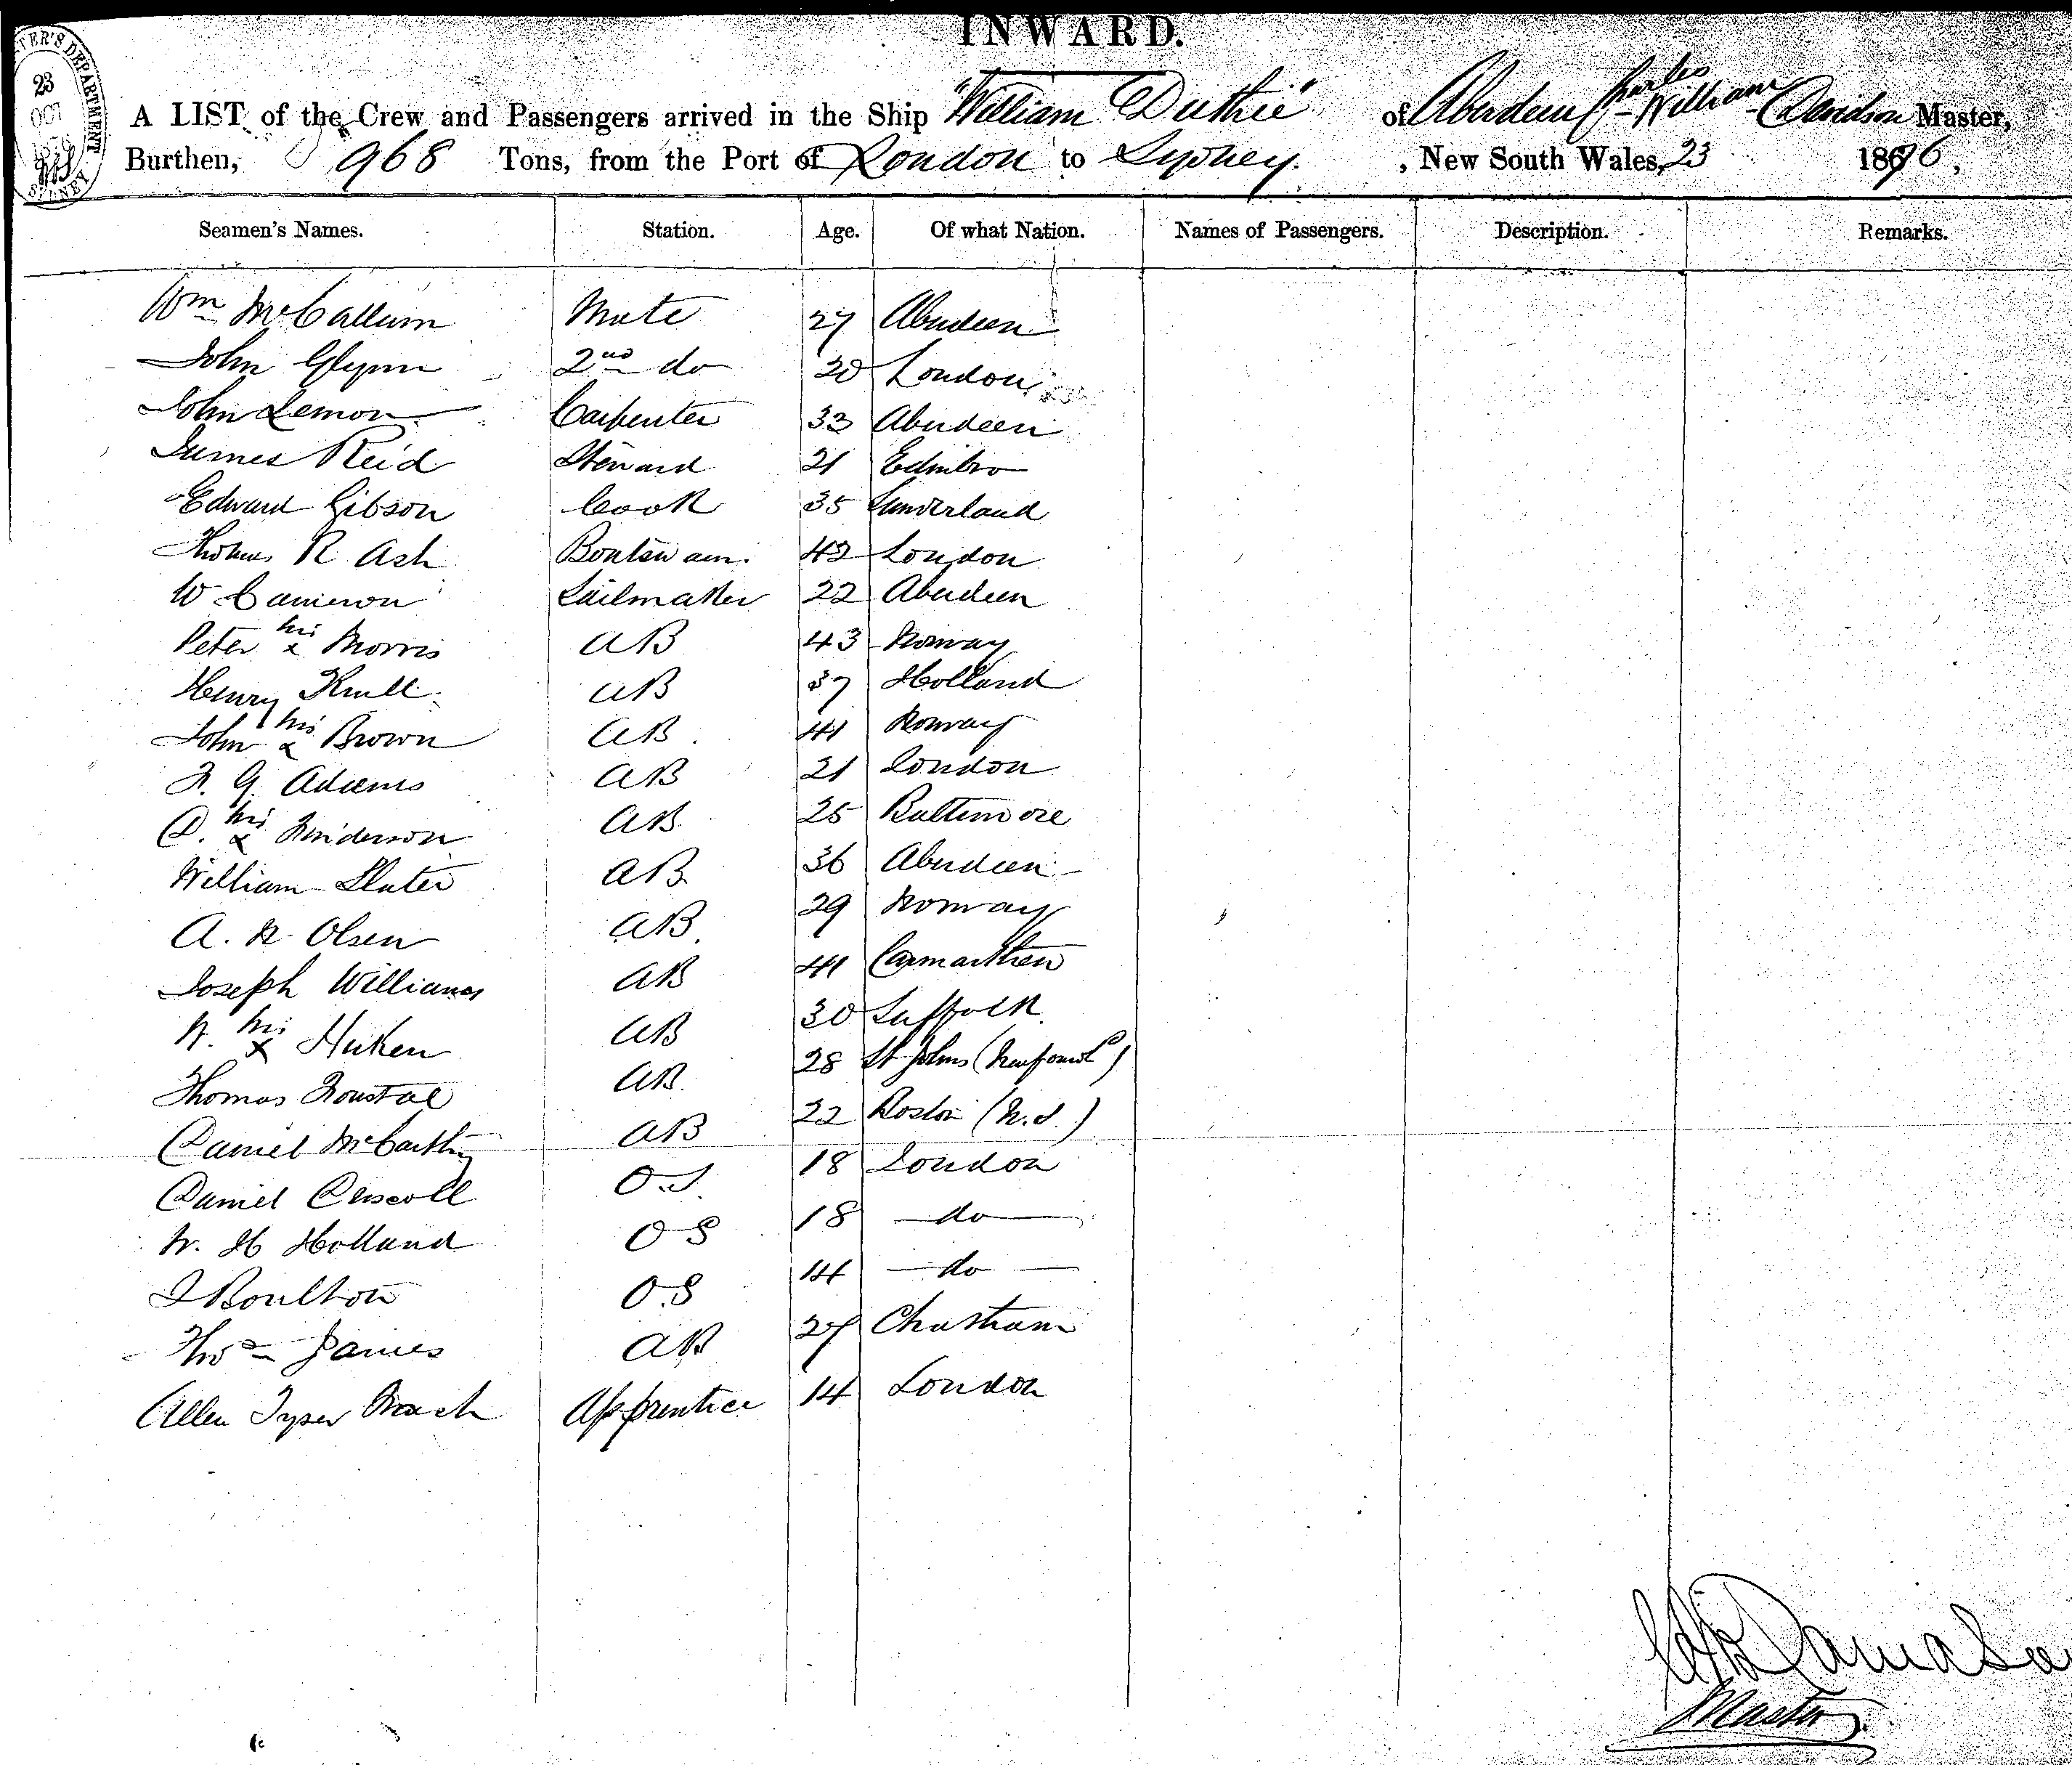 INWARD.
TER'S DEPARTMENT
23
OCT
SYDNEY
A LIST of the Crew and Passengers arrived in the Ship "William Duthie" of Aberdeen Charles William Davidson Master,
Burthen, 968 Tons, from the Port of London to Sydney. , New South Wales, 23 1876,
Seamen's Names. Station. Age. Of what Nation. Names of Passengers. Description. Remarks.
Wm McCallum Mate 27 Aberdeen
John Glynn 2nd do 30 London
John Lemon Carpenter 33 Aberdeen
James Reid Steward 21 Edinbro
Edward Gibson Cook 35 Sunderland
Thomas R Ash Boatswain. 42 London
W Cameron Sailmaker 22 Aberdeen
Peter his x Morris AB 43 Norway
Henry AB 37 Holland
John his x Brown AB 41 Norway
G. Adams AB 21 London
D. his x AB 25 Baltimore
William Slater AB 36 Aberdeen
A. N. Olsen AB 29 Norway
Joseph Williams AB 41 Carmarthen
his x AB 30 Suffolk
Thomas AB 28 St Johns
Daniel McCarthy AB 22 Boston
Daniel Driscoll O.S. 18 London
H Holland OS 18 do
J Boulton O.S 14 do
Thos James AB 27 Chatham
Allen Tyser Apprentice 14 London
Davidson
Master